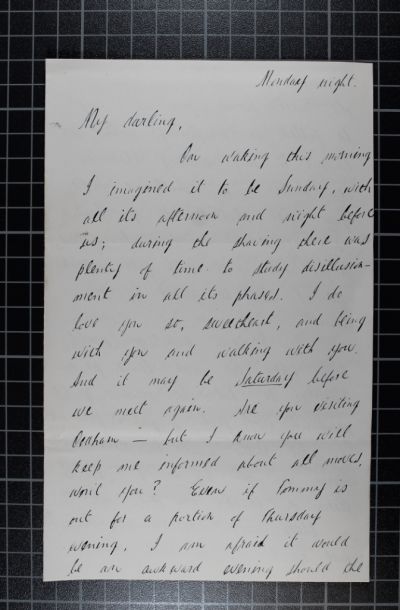 Monday night.
My darling,
On waking this morning
I imagined it to be Sunday, with
all its afternoon and night before
us; during the shaving there was
plenty of time to study disillusion-
ment in all its phases. I do
love you so, sweetheart, and being
with you and walking with you.
And it may be Saturday before
we meet again. Are you visiting
Dedham – but I know you will
keep me informed about all moves,
won't you? Even if Tommy is
out for a portion of Thursday
evening, I am afraid it would
be an awkward evening should the